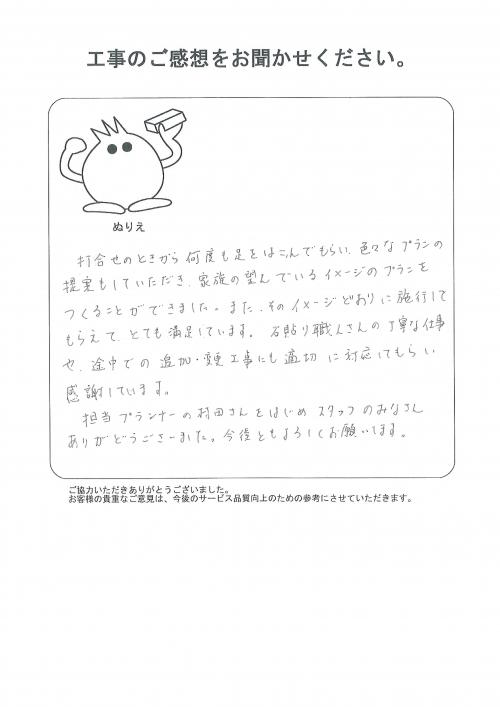 工事のご感想をお聞かせください。
ぬりえ
打合せのときから何度も足をはこんでもらい、色々なプランの
提案もしていただき、家族の望んでいるイメージのプランを
つくることができました。また、そのイメージどおりに施行して
もらえて、とても満足しています。石貼り職人さんの丁寧な仕事
や、途中での追加・変更工事にも適切に対応してもらい
感謝しています。
担当プランナーの村田さんをはじめスタッフのみなさん
ありがとうございました。今後ともよろしくお願いします。
ご協力いただきありがとうございました。
お客様の貴重なご意見は、今後のサービス品質向上のための参考にさせていただきます。